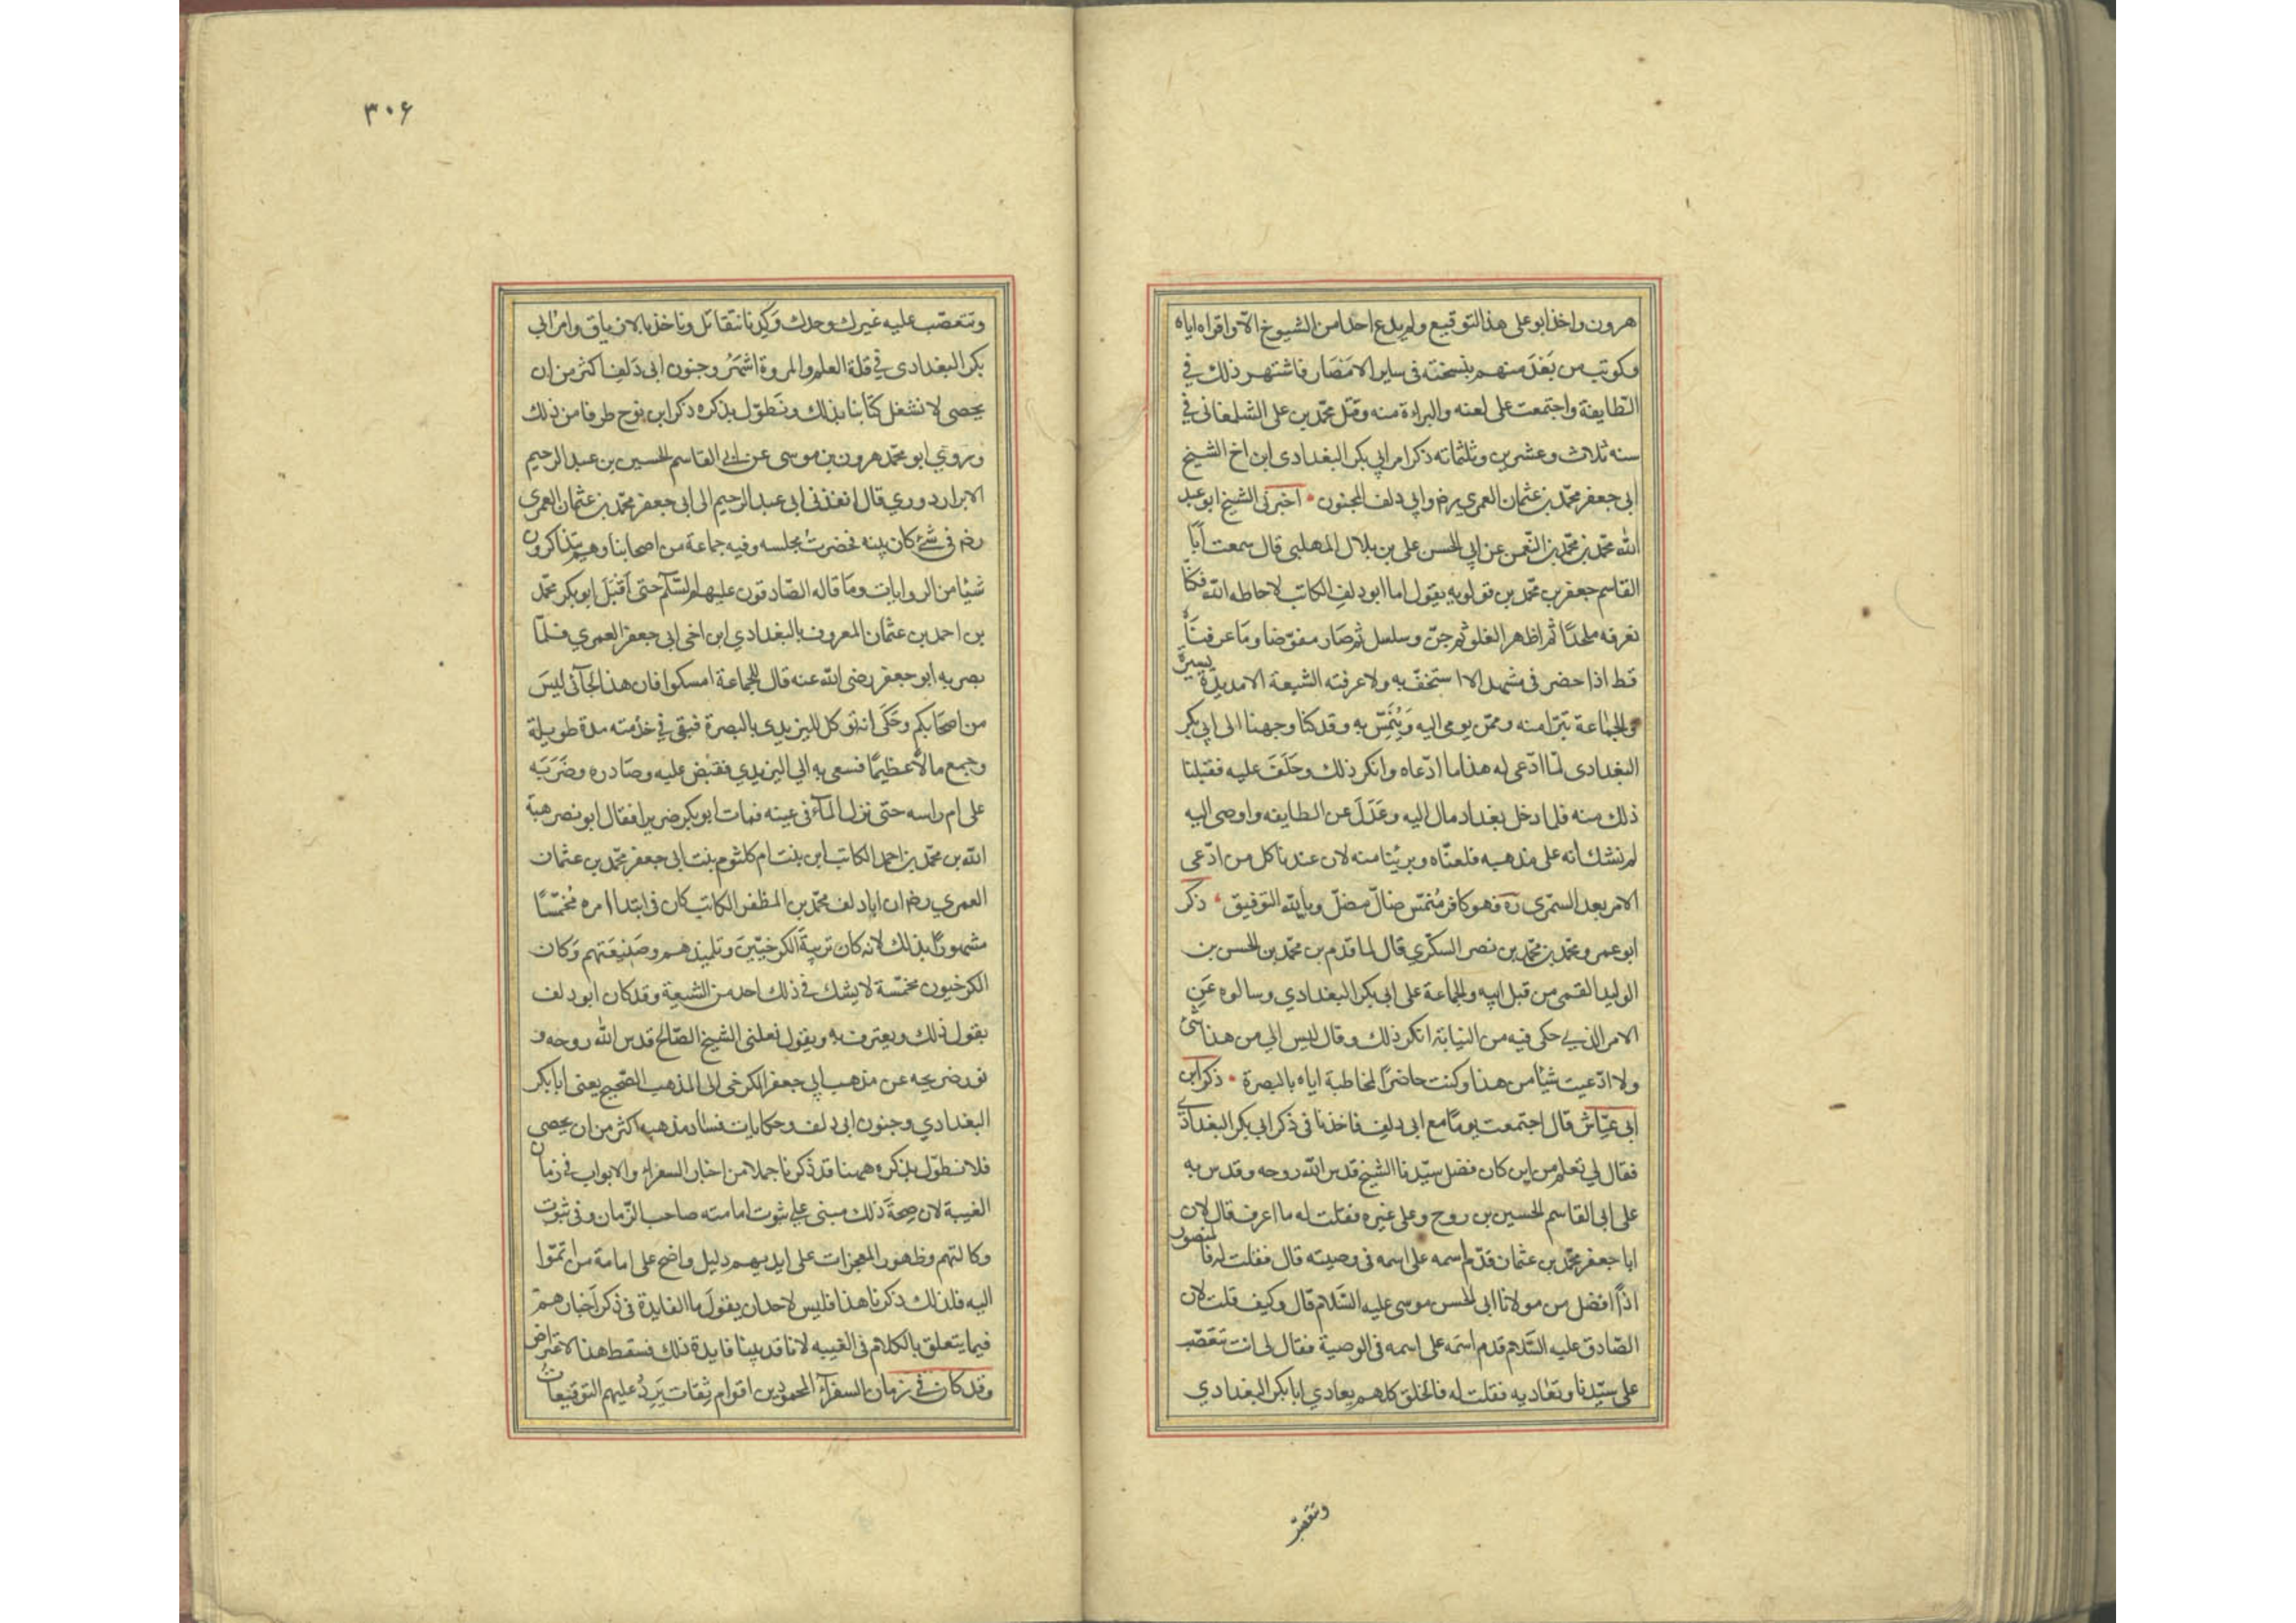 هرون واخذ ابو على هذا التوقيع ولم يدع احدا من الشيوخ الّا واقراه اياه
وكوتب من بَعُدَ منهم بنسخته فى ساير الامصَار فاشتهر ذلك في
الطايفة واجتمعت على لعنه والبراءة منه وقتل محمّد بن على الشلمغانى في
سنه ثلاث وعشرين وثلثمائه ذكر امر ابي بكر البغدادى ابن اخ الشيخ
ابى جعفر محمّد بن عثمان العمرى رض وابي دلف المجنون اخبرنى الشيخ ابو عبد
الله محمّد بن محمّد بن النّعمن عن ابي الحسن على بن بلال المهلبى قال سمعت اَبَا
القاسم جعفر بن محمّد بن قولويه يقول اما ابو دلف الكاتب لا حاطه الله فكنّا
نعرفه ملحدًا ثم اظهر الغلو ثم جنّ وسلسل ثم صَار مفوّضا وما عرفنَاه
قط اذا حضر فى مشهد الا استخفّ به ولا عرفته الشيعة الا مديدة يسيرة
والجماعة تتبرّا منه وممّن يومى اليه وَيُنَمِّسُ به وقد كنا وجهنا الى ابي بكر
البغدادى لمّا ادّعى له هذا ما ادّعاه وانكر ذلك وحَلَفَ عليه فقبلنا
ذلك منه فلما دخل بغداد مال اليه وعَدَلَ عن الطايفه واوصى اليه
لم نشك انه على مذهبه فلعنّاه وبرئنا منه لان عندنا كل من ادّعى
الامر بعد السّمرى ره فهو كافر مُنمّس ضالّ مضلّ وبالله التوفيق ذكر
ابو عمرو محمّد بن محمّد بن نصر السكّري قال لما قدم بن محمّد بن الحسن بن
الوليد القمى من قبل ابيه والجماعة على ابى بكر البغدادي وسالوه عَنِ
الامر الذي حكى فيه من النيابة انكر ذلك وقال ليس الي من هذا شئ
ولا ادّعيت شيئا من هذا وكنت حاضرًا لمخاطبة اياه بالبصرة ذكر ابن
ابى عيّاش قال اجتمعت يومًا مع ابى دلف فاخذنا فى ذكر ابي بكر البغدادي
فقال لى تعلم من اين كان فضل سيّدنا الشيخ قدس الله روحه وقدس به
على ابى القاسم الحسين بن روح وعلى غيره فقلت له ما اعرف قال لان
ابا جعفر محمّد بن عثمان قدّم اسمه على اسمه فى وصيته قال فقلت له فالمنصور
اذًا افضل من مولانا ابى الحسن موسى عليه السّلام قال وكيف قلت لان
الصّادق عليه السَّلام قدم اسمَه على اسمه فى الوصية فقال لى انت تتعَصّب
على سيّدنا وتعَاديه فقلت له فالخلق كلهم يعادي ابا بكر البغدادي
وتتعصّب
٣٠۶
وتتعصّب عليه غيرك وحدك وَكِدنا نتقاتل وناخذ بالازياق وامر ابى
بكر البغدادى في قلة العلم والمروة اشهَر وجنون ابى دَلف اكثر من ان
يحصى لا نشغل كتابنا بذلك ونَطوّل بذكره ذكر ابن نوح طرفا من ذلك
وروي ابو محمّد هرون بن موسى عن ابى القاسم الحسين بن عبد الرحيم
الابراردوري قال انفذنى ابى عبد الرحيم الى ابى جعفر محمّد بن عثمان العمرى
رضه فى شئ كان بينه فحضرت مجلسه وفيه جماعة من اصحابنا وهم يتذاكرون
شيئا من الروايات ومَا قاله الصّادقون عليهم السّلم حتى اَقبَل ابو بكر محمّد
بن احمد بن عثمان المعروف بالبغدادي ابن اخى ابى جعفر العمري فلمّا
بصر به ابو جعفر رضى الله عنه قال للجماعة امسكوا فان هذا الجآئى ليسَ
من اصحابكم وحَكى انه توكل لليزيدى بالبصرة فبقى في خدمته مدة طويلة
وجمع مالاً عظيمًا فسعى به الي اليزيدي فقبض عليه وصَادره وضَرَبَه
على ام راسه حتى نزل المآء فى عينه فمات ابو بكر ضريرا فقال ابو نصر هبة
الله بن محمّد بن احمد الكاتب ابن بنت ام كلثوم بنت ابى جعفر محمّد بن عثمان
العمري رضه ان ابا دلف محمّد بن المظفر الكاتب كان فى ابتدا امره مُخمّسًا
مشهورًا بذلك لانه كان تربيةَ الكرخيّينَ وتلميذهم وصَنيعَتهم وَكان
الكرخيون مخمّسة لا يشك في ذلك احد من الشيعة وقد كان ابو دلف
يقول ذلك ويعترف به ويقول نقلنى الشيخ الصّالح قدس الله روحه و
نور ضريحه عن مذهب ابي جعفر الكرخى الى المذهب الصّحيح يعنى ابا بكر
البغدادي وجنون ابى دلف وحكايات فساد مذهبه اكثر من ان يحصى
فلا نطوّل بذكره ههنا قد ذكرنا جملا من اخبار السفراء والابواب فى زمان
الغيبة لان صِحةَ ذلك مبنى على ثبوت امامته صاحب الزّمان وفى ثبوت
وكالتهم وظهور المعجزات على ايديهم دليل واضح على امامة من انتمَوا
اليه فلذلك ذكرنا هذا فليس لاحد ان يقول ما الفايدة فى ذكر اَخبارهم
فيما يتعلق بالكلام فى الغيبه لانا قد بينا فايدة ذلك فسقط هذا الاعتراض
وقد كان في زمان السفرآء المحمودين اقوام ثِقات يَرِدُ عليهم التوقيعات